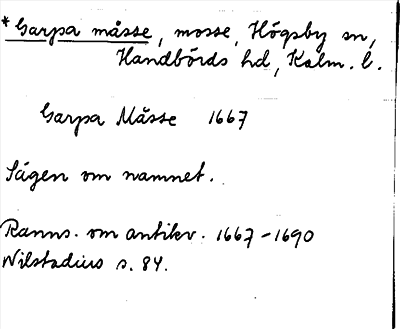 *Garpa måsse, mosse, Högsby sn,
Handbörds hd, Kalm. l.
Garpa Måsse 1667
Sägen om namnet.
Ranns. om antikv. 1667-1690
Nilstadius s. 84.